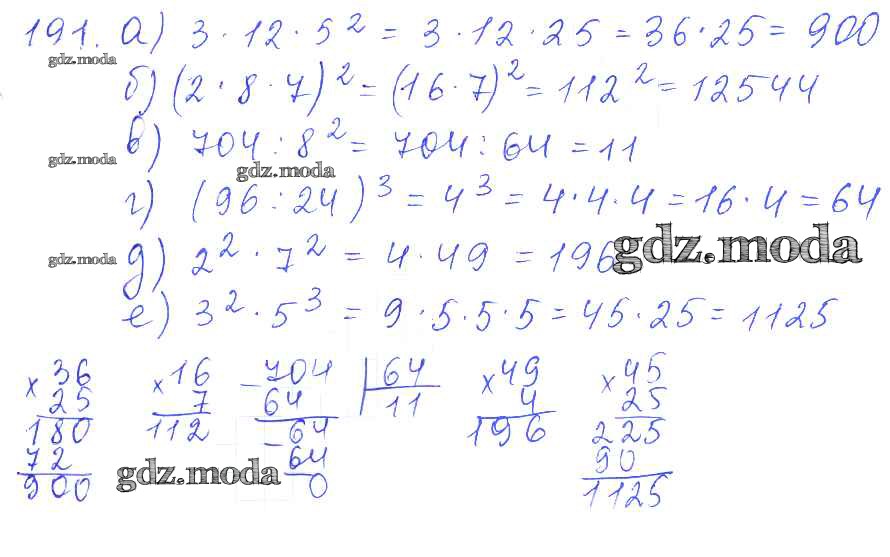 191. а) 3 · 12 · 5² = 3 · 12 · 25 = 36 · 25 = 900
gdz.moda
б) (2 · 8 · 7)² = (16 · 7)² = 112² = 12544
в) 704 : 8² = 704 : 64 = 11
gdz.moda
gdz.moda
г) (96 : 24)³ = 4³ = 4 · 4 · 4 = 16 · 4 = 64
gdz.moda
д) 2² · 7² = 4 · 49 = 196
gdz.moda
е) 3² · 5³ = 9 · 5 · 5 · 5 = 45 · 25 = 1125
× 36
25
180
72
900
× 16
7
112
− 704 | 64
64 11
− 64
64
0
× 49
4
196
× 45
25
225
90
1125
gdz.moda